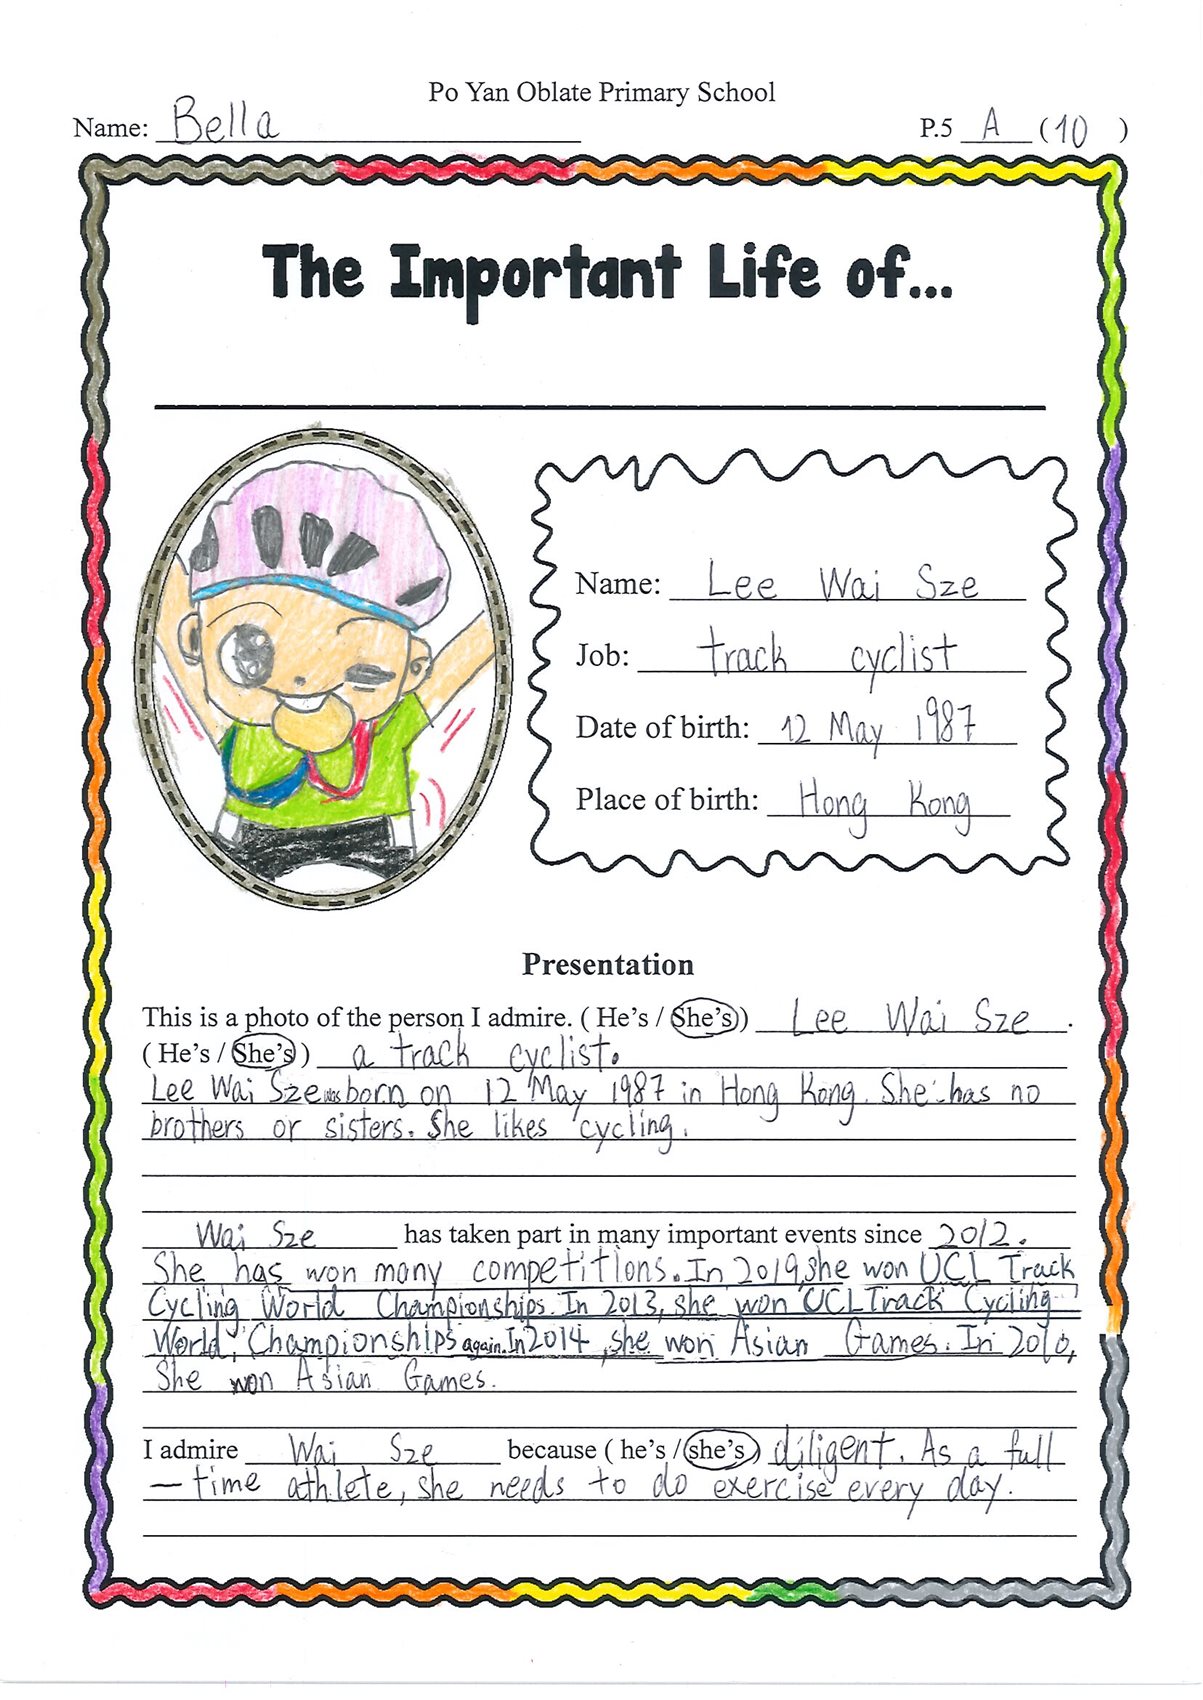 Po Yan Oblate Primary School
Name: Bella P.5 A (10 )
The Important Life of...
Name: Lee Wai Sze
Job: track cyclist
Date of birth: 12 May 1987
Place of birth: Hong Kong
Presentation
This is a photo of the person I admire. ( He's / She's ) Lee Wai Sze .
( He's / She's ) a track cyclist.
Lee Wai Sze was born on 12 May 1987 in Hong Kong. She has no
brothers or sisters. She likes cycling.
Wai Sze has taken part in many important events since 2012.
She has won many competitions. In 2019, she won UCL Track
Cycling World Championships. In 2013, she won UCL Track Cycling
World Championships again. In 2014, she won Asian Games. In 2010,
She won Asian Games.
I admire Wai Sze because ( he's / she's ) diligent. As a full
-time athlete, she needs to do exercise every day.